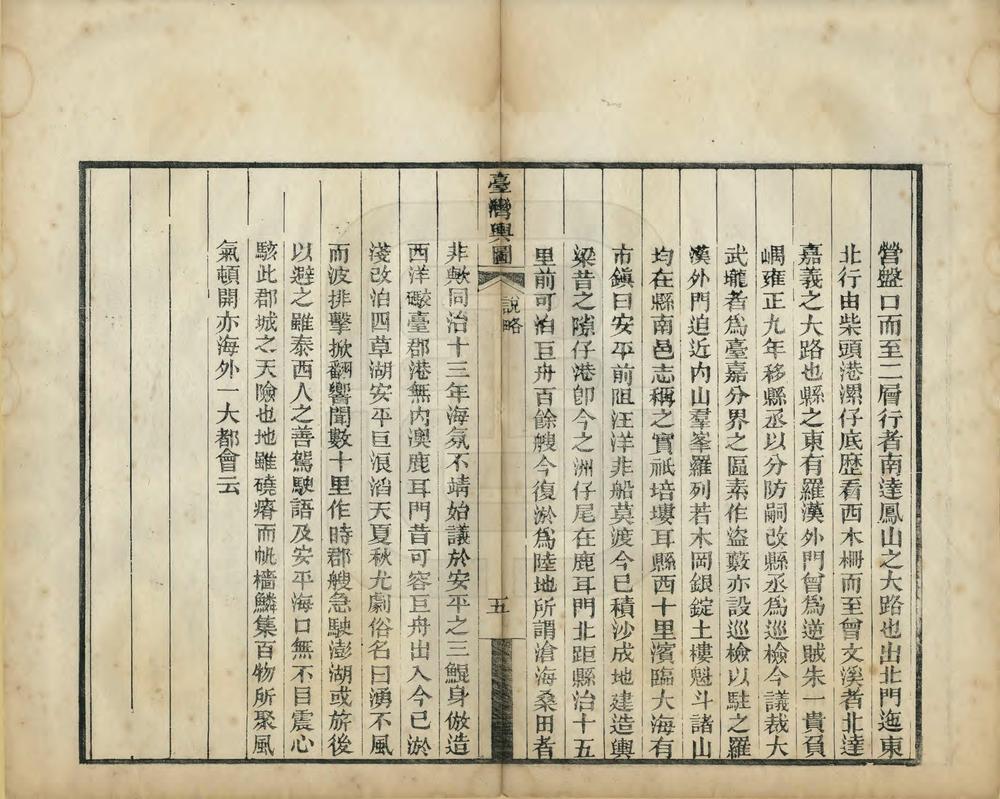 營盤口而至二層行者南達鳳山之大路也出北門迤東
北行由柴頭港漯仔底歷看西木柵而至曾文溪者北達
嘉義之大路也縣之東有羅漢外門曾爲逆賊朱一貴負
嵎雍正九年移縣丞以分防嗣改縣丞爲巡檢今議裁大
武壠者爲臺嘉分界之區素作盜藪亦設巡檢以駐之羅
漢外門迫近內山羣峯羅列若木岡銀錠土樓魁斗諸山
均在縣南邑志稱之實祇培塿耳縣西十里濱臨大海有
市鎭曰安平前阻汪洋非船莫渡今已積沙成地建造輿
梁昔之隙仔港卽今之洲仔尾在鹿耳門北距縣治十五
里前可泊巨舟百餘艘今復淤爲陸地所謂滄海桑田者
臺灣輿圖 說略 五
非歟同治十三年海氛不靖始議於安平之三鯤身倣造
西洋礮臺郡港無內澳鹿耳門昔可容巨舟出入今已淤
淺改泊四草湖安平巨浪滔天夏秋尤劇俗名曰湧不風
而波排擊掀翻響聞數十里作時郡艘急駛澎湖或旂後
以避之雖泰西人之善駕駛語及安平海口無不目震心
駭此郡城之天險也地雖磽瘠而帆檣鱗集百物所聚風
氣頓開亦海外一大都會云